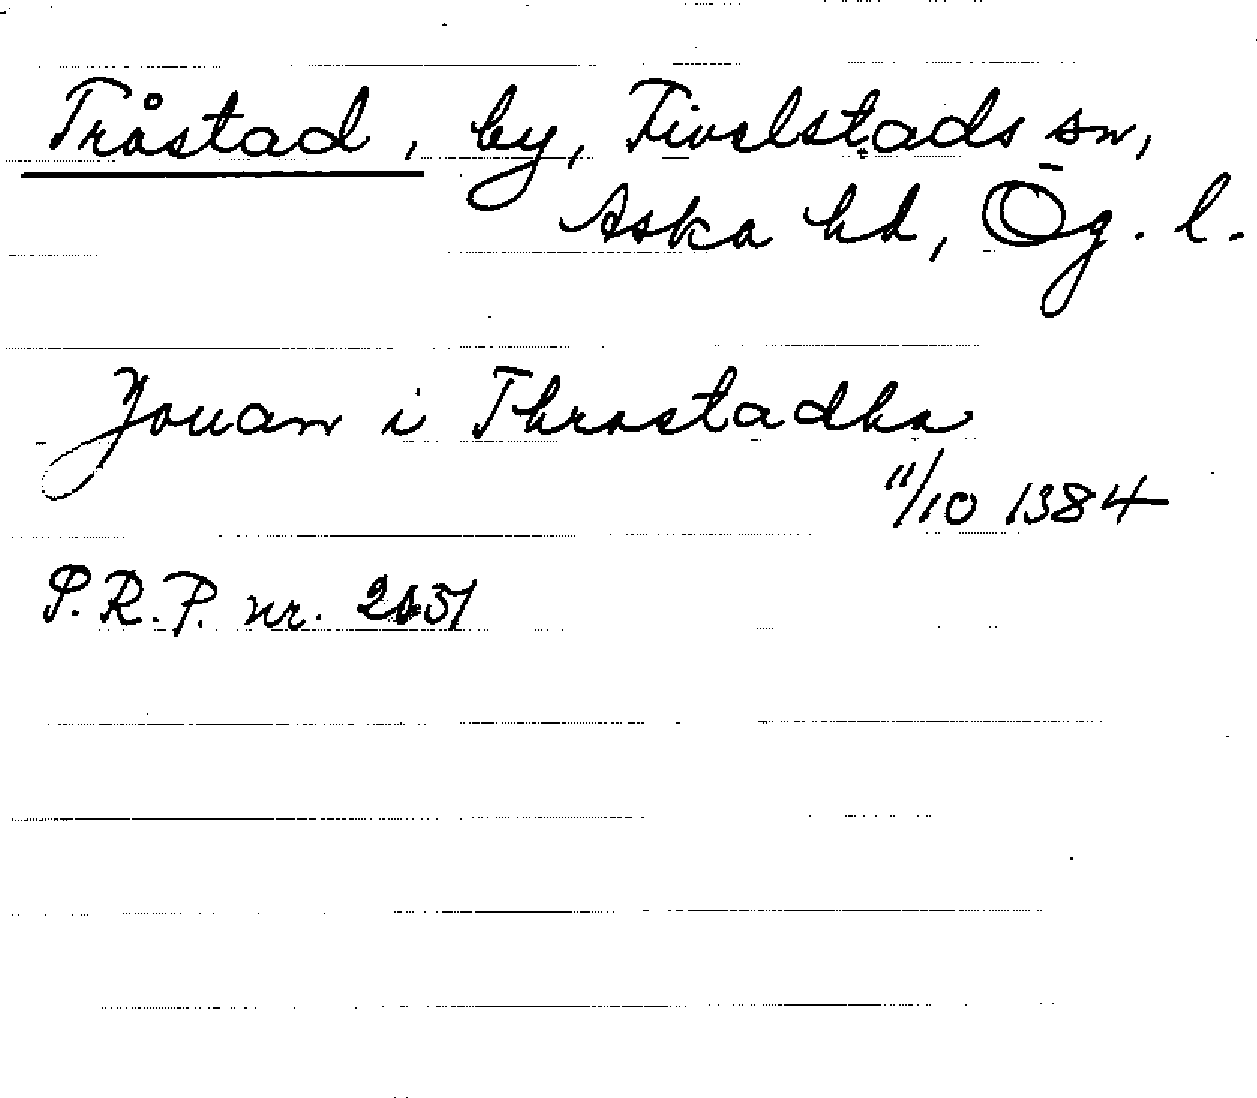 Tråstad, by, Fivelstads sn,
Aska hd, Ög. l.
Jouan i Throstadha
11/10 1384
P.R.P. nr. 2151